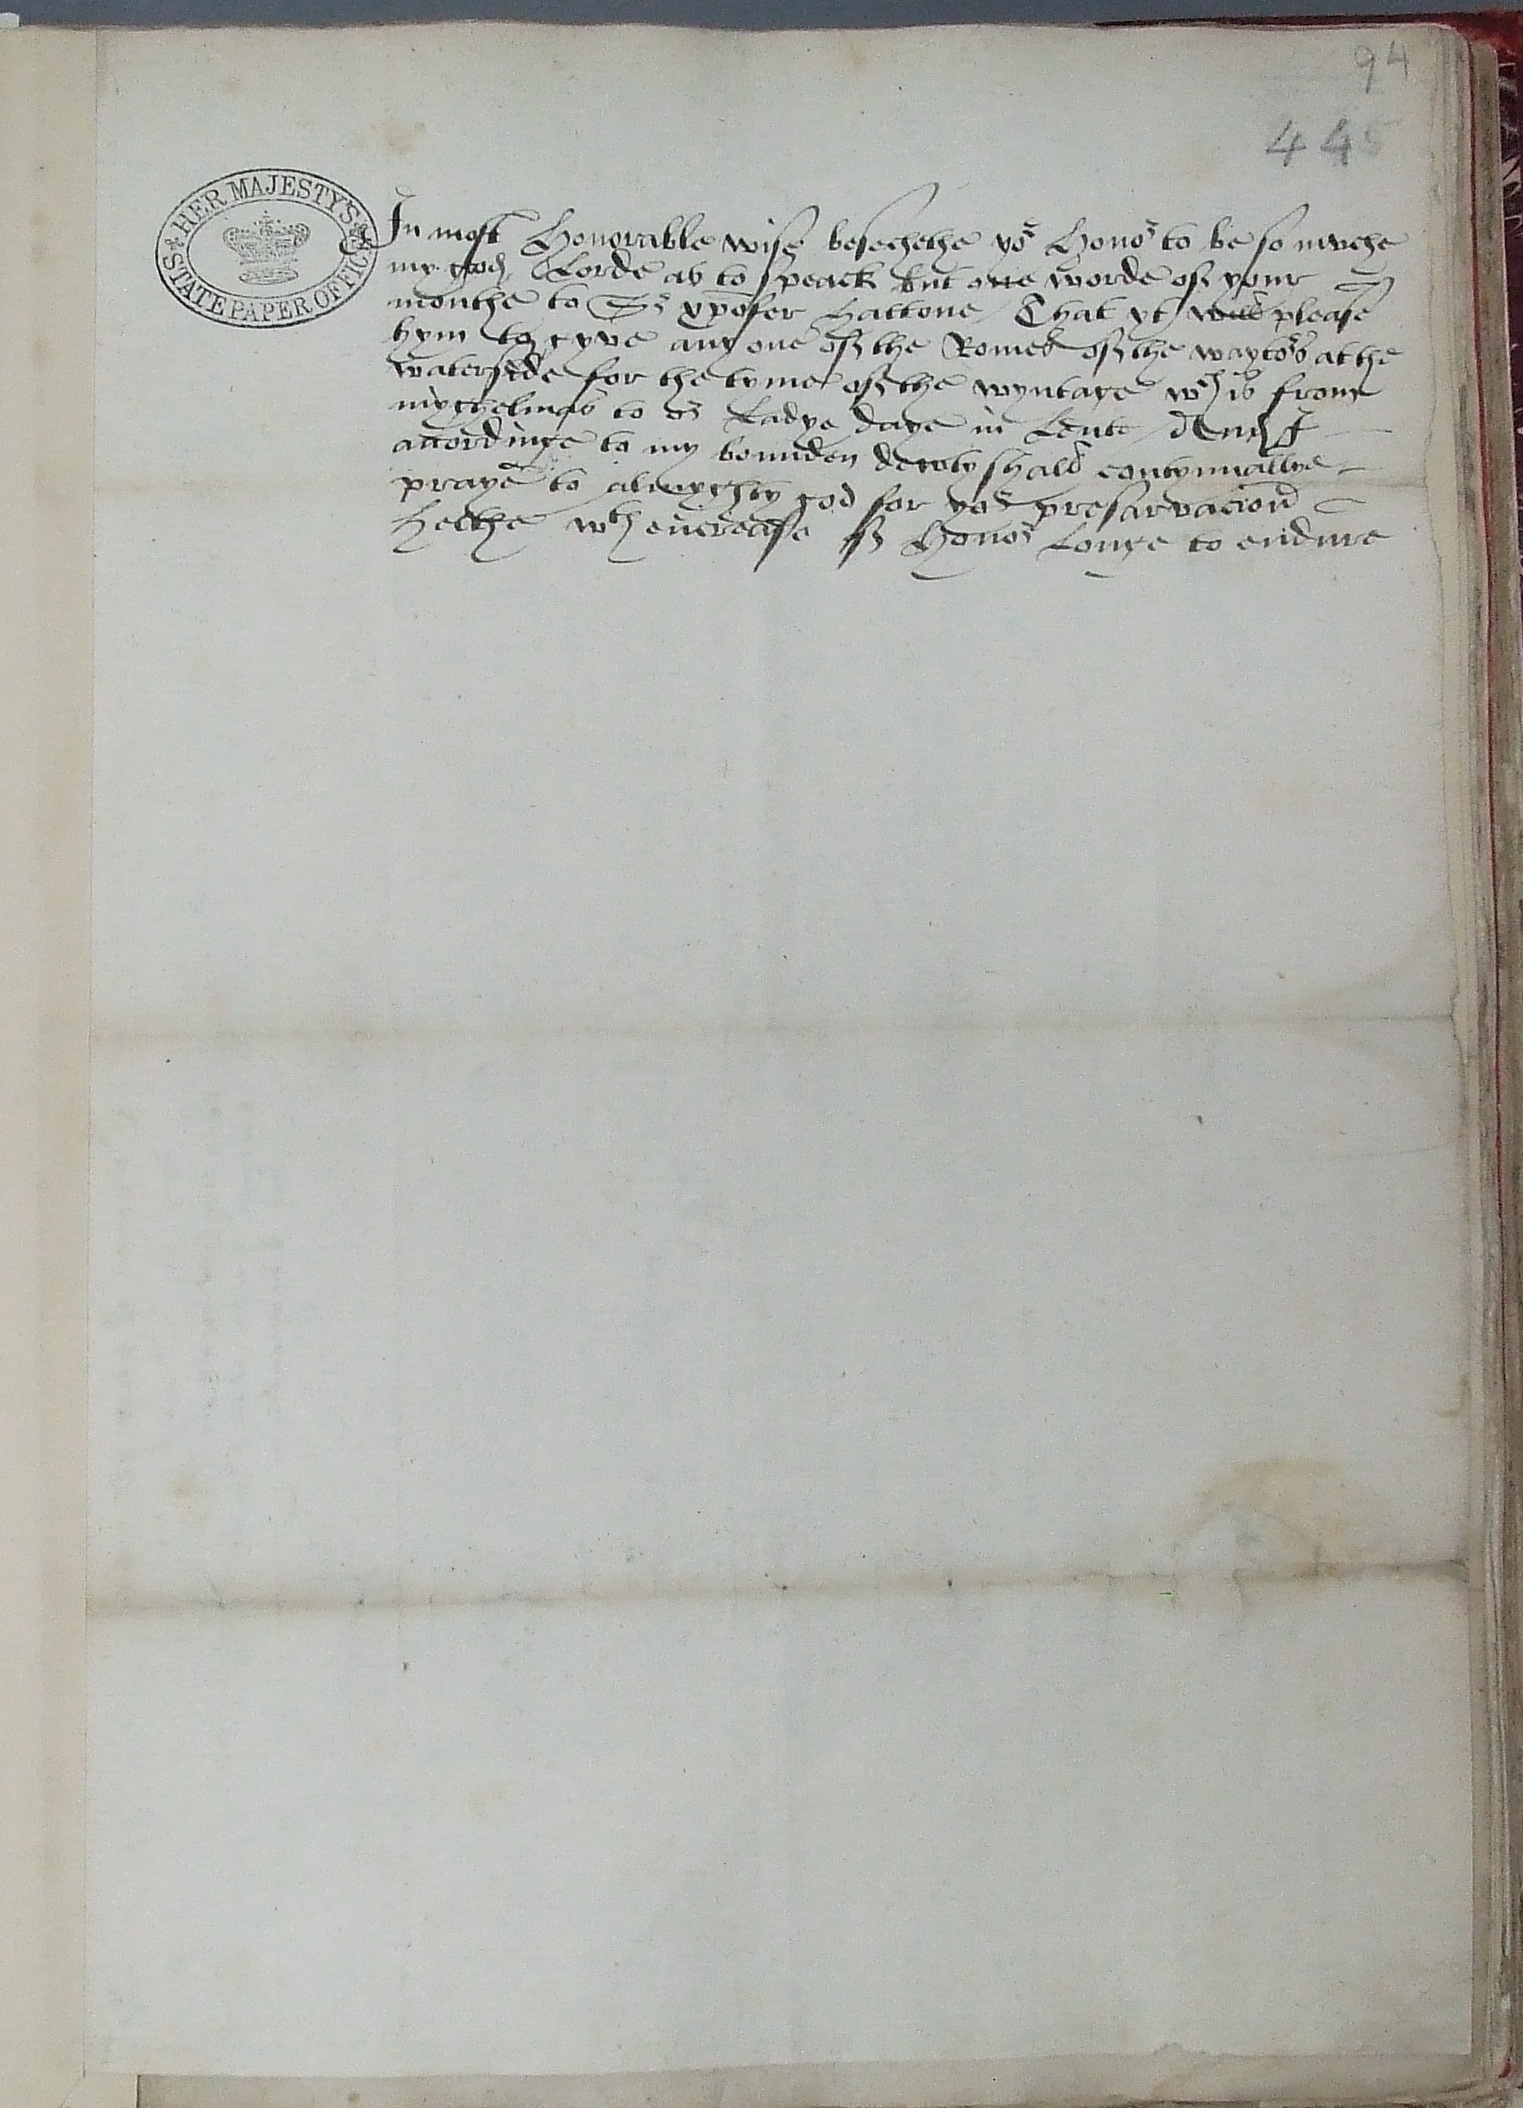 94
445
HER MAJESTY'S STATE PAPER OFFICE
In most Honorable wise besechethe yor Honor to be so muche
my good Lorde as to speack but one worde of your
mouthe to Sr Xpofer Hattone / That yt will please
hym to gyve any one of the Romes of the waytors at the
watersyde for the tyme of the wyntage wch is frome
myghelmas to or Ladye daye in Lente / And I
accordinge to my bounden dewty shall contynuallye
praye to almyghty god for yor presarvacion
helthe wth encrease of Honor Longe to endure